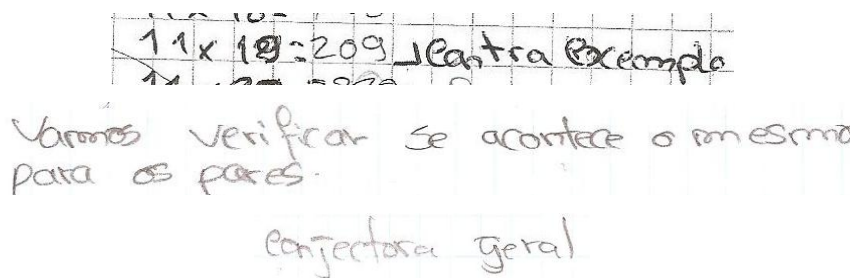 11x19=209 → Contra exemplo
Vamos verificar se acontece o mesmo
para os pares.
conjectora geral